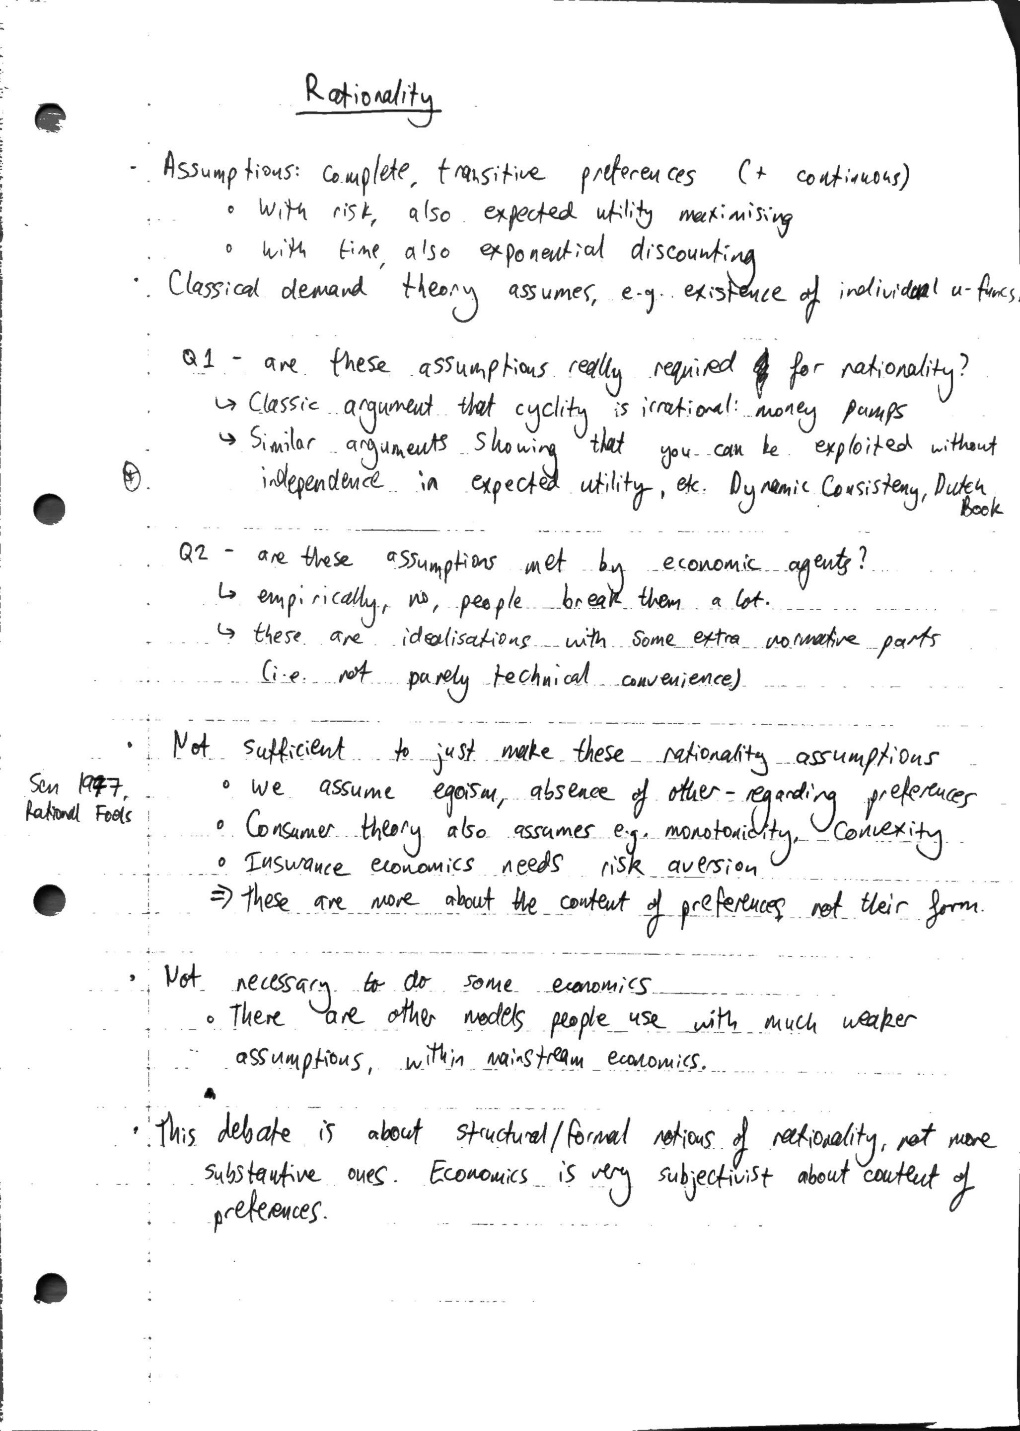 Rationality
- Assumptions: complete, transitive preferences (+ continuous)
◦ With risk, also expected utility maximising
◦ with time, also exponential discounting
· Classical demand theory assumes, e.g. existence of individual u-funcs.
Q1 - are these assumptions really required for rationality?
↳ Classic argument that cyclity is irrational: money pumps
↳ Similar arguments showing that you can be exploited without
independence in expected utility, etc. Dynamic Consisteny, Dutch
Book
Q2 - are these assumptions met by economic agents?
↳ empirically, no, people break them a lot.
↳ these are idealisations with some extra normative parts
(i.e. not purely technical convenience)
· Not sufficient to just make these rationality assumptions
Sen 1977,
Rational Fools
◦ we assume egoism, absence of other-regarding preferences
◦ Consumer theory also assumes e.g. monotonicity, Convexity
◦ Insurance economics needs risk aversion
⇒ these are more about the content of preferences not their form.
· Not necessary to do some economics
◦ There are other models people use with much weaker
assumptions, within mainstream economics.
· This debate is about structural/formal notions of rationality, not more
substantive ones. Economics is very subjectivist about content of
preferences.